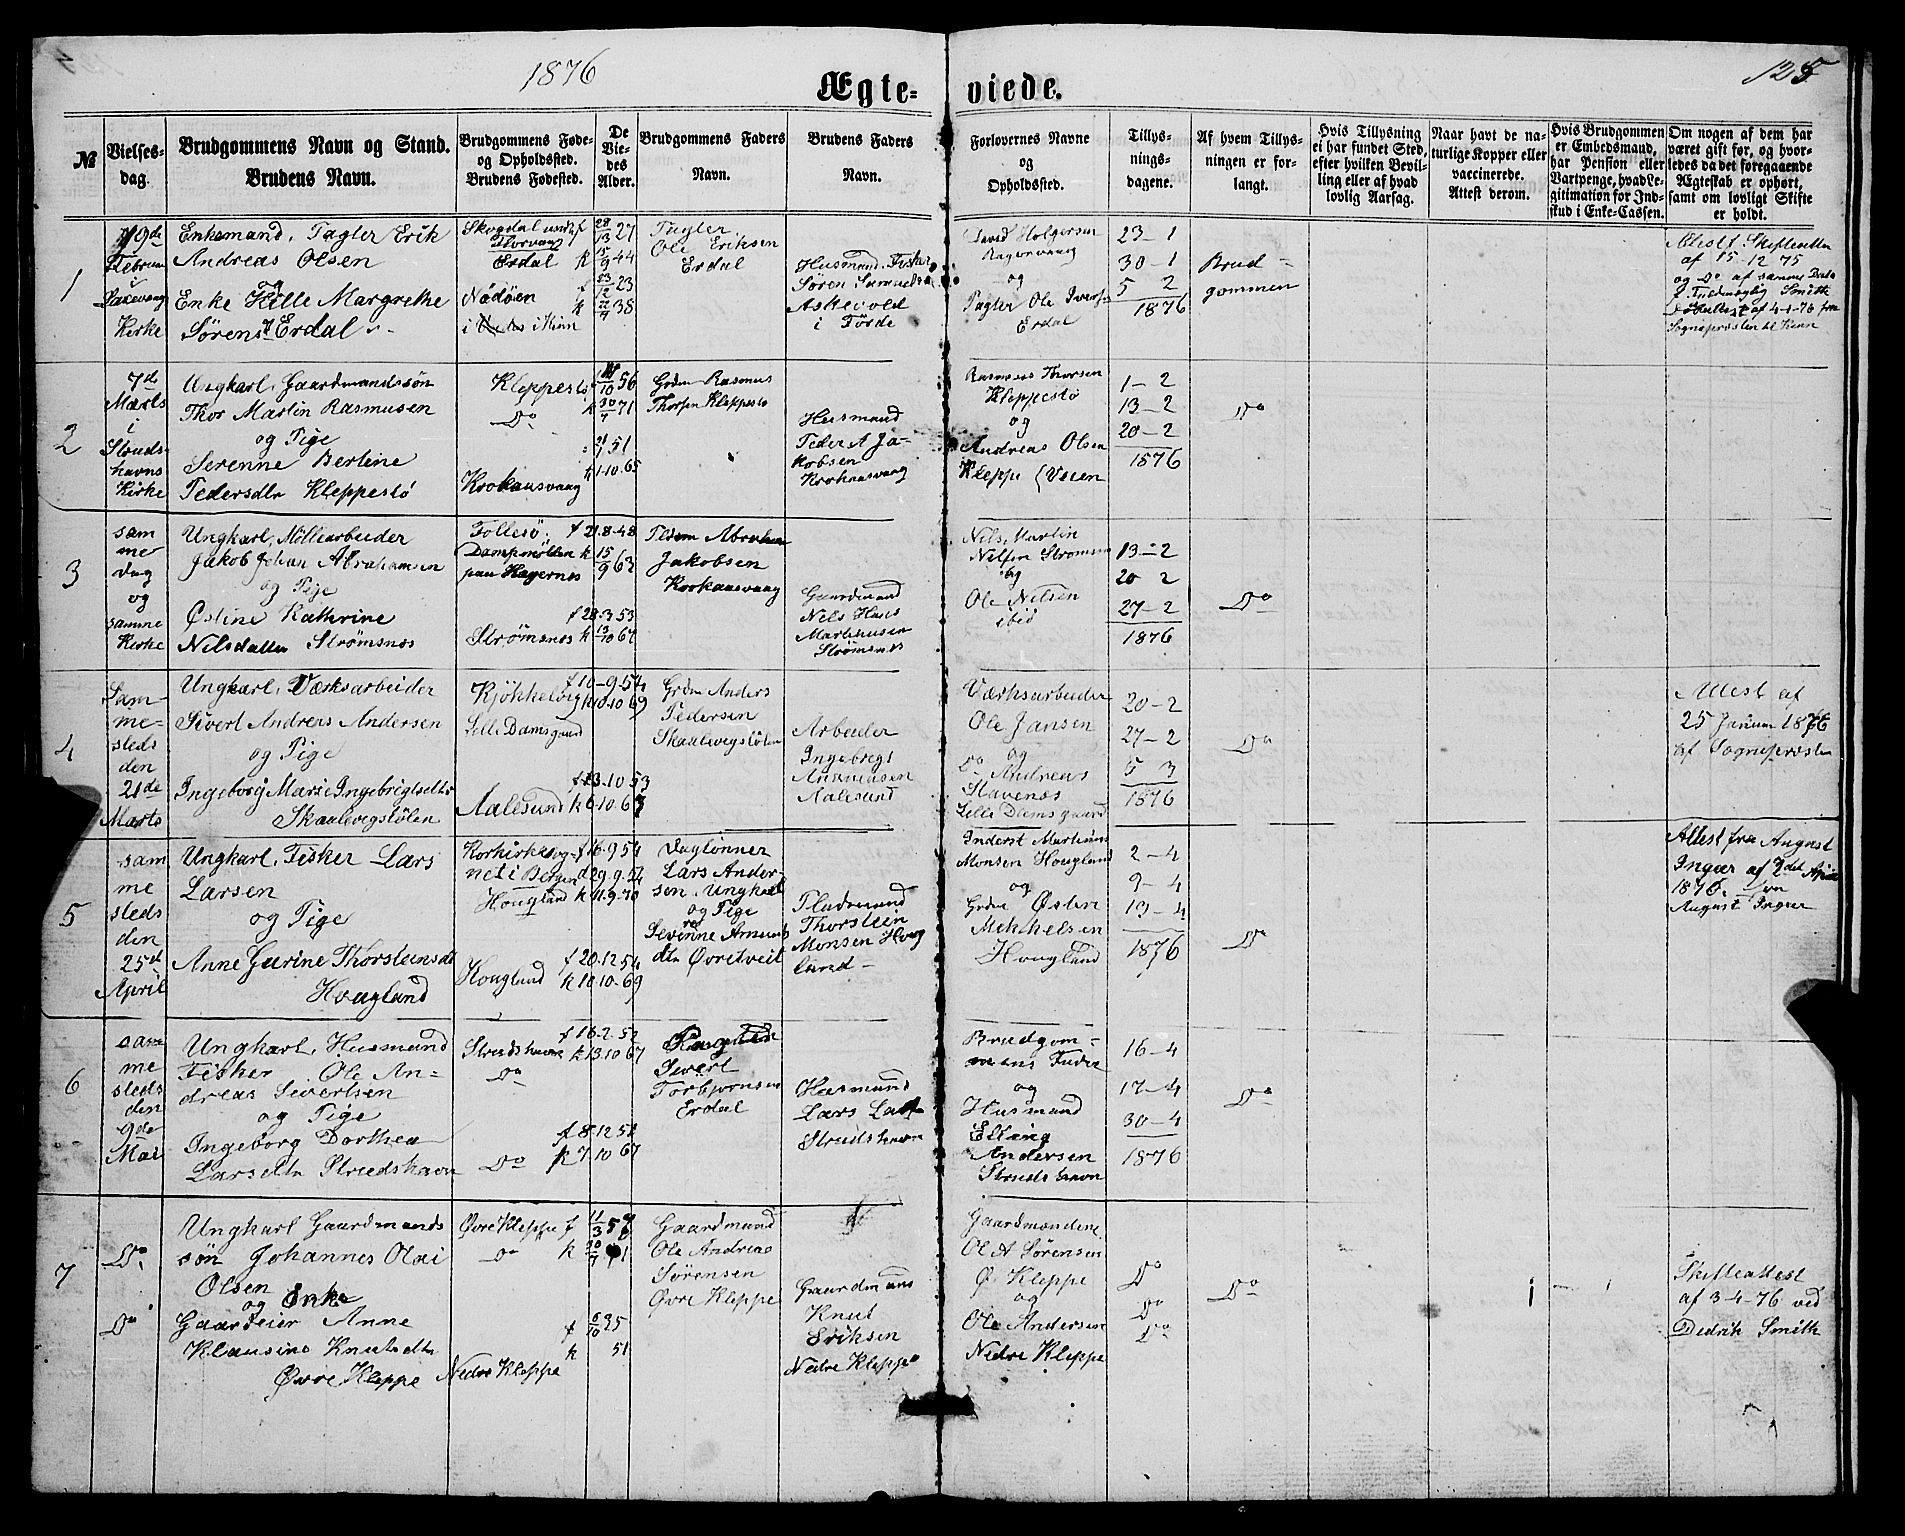 1876
125
Ægte-
viede.
№
Vielses-
dag.
Brudgommens Navn og Stand.
Brudens Navn.
Brudgommens Føde-
og Opholdssted.
Brudens Fødested.
De
Vie-
des
Alder.
Brudgommens Faders
Navn.
Brudens Faders
Navn.
Forlovernes Navne
og
Opholdssted.
Tillys-
nings-
dagene.
Af hvem Tillys-
ningen er for-
langt.
Hvis Tillysning
ei har fundet Sted,
efter hvilken Bevil-
ling eller af hvad
lovlig Aarsag.
Naar havt de na-
turlige Kopper eller
vaccinerede.
Attest derom.
Hvis Brudgommen
er Embedsmand,
har Pension eller
Vartpenge, hvad Le-
gitimation for Ind-
skud i Enke-Cassen.
Om nogen af dem har
været gift før, og hvor-
ledes da det foregaaende
Ægteskab er ophørt,
samt om lovligt Skifte
er holdt.
1
Februar
i
Kirke
Enkemand, Pagler Erik
Andreas Olsen
og
Enke Hille Margrethe
Sørens Erdal
Skogdal
Erdal
Nødøen
i Kinn
28/13 27
15/9 44
23
38
Pagler
Ole Eriksen
Erdal
Husmand, Fisker
Askevold
i Førde
David Holgersen
og
Pagler Ole Iversen
Erdal
23-1
30-1
5 2
1876
Brud-
gommen
Attest Skifteretten
af 15-12 75
af 4-1-76 fra
Sognepræsten til Kinn
2
7de
Marts
i
Struds-
havns
Kirke
Ungkarl, Gaardmandssøn
Thor Martin Rasmusen
og Pige
Serenne Bertine
Pedersdtr Kleppestø
Kleppestø
Do
Krokaasvaag
56
k 30/4 71
51
k 1-10-65
Grdm Rasmus
Thorsen Kleppestø
Husmand
Peder A Ja-
kobsen
Krokaasvaag
Rasmus Thorsen
Kleppestø
og
Andreas Olsen
Kleppe (Veien
1-2
13-2
20-2
1876
Do
3
sam
me
dag
og
samme
Kirke
Ungkarl, Møllearbeider
Jakob Johan Abrahamsen
og Pige
Østine Kathrine
Nilsdatter Strømsnes
Follesø,
Dampmøllen
paa Hagernes
Strømsnes
f 21.8-48
k 15/9 63
f 28.3 53
k 13/10 67
Pldsm Abraham
Jakobsen
Krokaasvaag
Gaardmand
Nils Hans
Markhusen
Strømsnes
Nils Martin
Nilsen Strømsnes
og
Ole Nilsen
ibid
13-2
20 2
27-2
1876
Do
4
Sam-
me-
steds
den
21de
Marts
Ungkarl, Værksarbeider
Sivert Andreas Andersen
og Pige
Ingeborg Marie Ingebrigtsdtr
Skaalevigstølen
Kjøkkelvig
Lille Damsgaard
Aalesund
f 10-9-54
k 10-10 69
f 13-10 53
k 6-10-67
Grdm Anders
Pedersen
Skaalevigstølen
Arbeider
Ingebrigt
Aalesund
Værksarbeider
Ole Jansen
og
Do Andreas
Stavenes
Lille Damsgaard
20-2
27-2
5 3
1876
Do
Attest af
25 Januar 1876
af Sognepræsten
5
sam
me
steds
den
25d
April
Ungkarl, Fisker Lars
Larsen
og Pige
Anne Gurine Thorsteinsdtr
Hougland
Korskirkesog-
net i Bergen
Hougland
Hougland
f 16.9 54
d 29.9.54
k 11-9-70
f 20-12 54
k 10-10-69
Daglønner
Lars Ander-
sen, Ungkarl
og Pige
Sevrinne Amunds
dtr Øvretveit
Pladsmand
Thorstein
Monsen Houg
land-
Inderst Markus
Monsen Hougland
og
Grdm Østen
Mikkelsen
Hougland
2-4
9-4
13-4
1876
Do
Attest fra August
Ingier af 7det April
1876.
August Ingier
6
sam
me
steds
den
9de
Mai
Ungkarl, Husmand
Fisker, Ole An-
dreas Sivertsen
og Pige
Ingeborg Dorthea
Larsdtr Strudshavn
Strudshavn
Do
Do
f 16-2-52
k 13-10 67
f 8-12 52
k 7-10 67
Sivert
Torbjørnsen
Erdal
Husmand
Lars
Strudshavn
Brudgom-
mens Fader
og
Husmand
Elling
Andersen
Strudshavn
16-4
17-4
30-4
1876
Do
7
Do
Do
Ungkarl Gaardmands
søn Johannes Olai
Olsen
og Enke
Gaardeier Anne
Klausine Knutsdtr
Øvre Kleppe
Øvre Kleppe
Do
Nedre Kleppe
f 11/3 57
k
f 6/10 35
k 51
Gaardmand
Ole Andreas
Sørensen
Øvre Kleppe
Gaardmann
Knut
Eriksen
Nedre Kleppe
Gaardmændene
Ol A Sørensen
Ø Kleppe
og
Ole Andersen
Nedre Kleppe
Do
Do
Do
Do
Skifteattest
af 3-4-76 ved
Didrik Smith